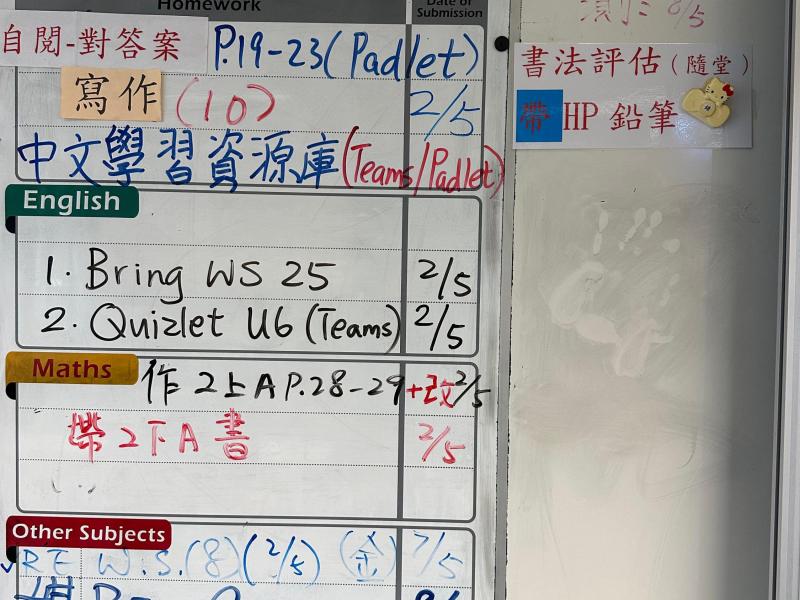 Homework
Date of Submission
自閱-對答案 P.19-23(Padlet)
寫作(10) 2/5
中文學習資源庫(Teams/Padlet)
English
1. Bring WS 25 2/5
2. Quizlet U6 (Teams) 2/5
Maths
作2上A P.28-29+改 2/5
帶2下A書 2/5
Other Subjects
RE W.S.(8)(2/5) (金) 7/5
8/5
書法評估(隨堂)
帶HP鉛筆